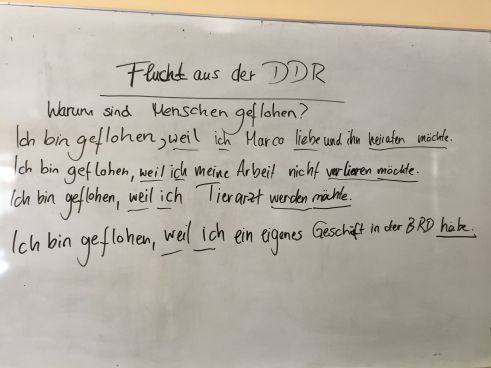 Flucht aus der DDR
Warum sind Menschen geflohen?
Ich bin geflohen, weil ich Marco liebe und ihn heiraten möchte.
Ich bin geflohen, weil ich meine Arbeit nicht verlieren möchte.
Ich bin geflohen, weil ich Tierarzt werden möchte.
Ich bin geflohen, weil ich ein eigenes Geschäft in der BRD habe.